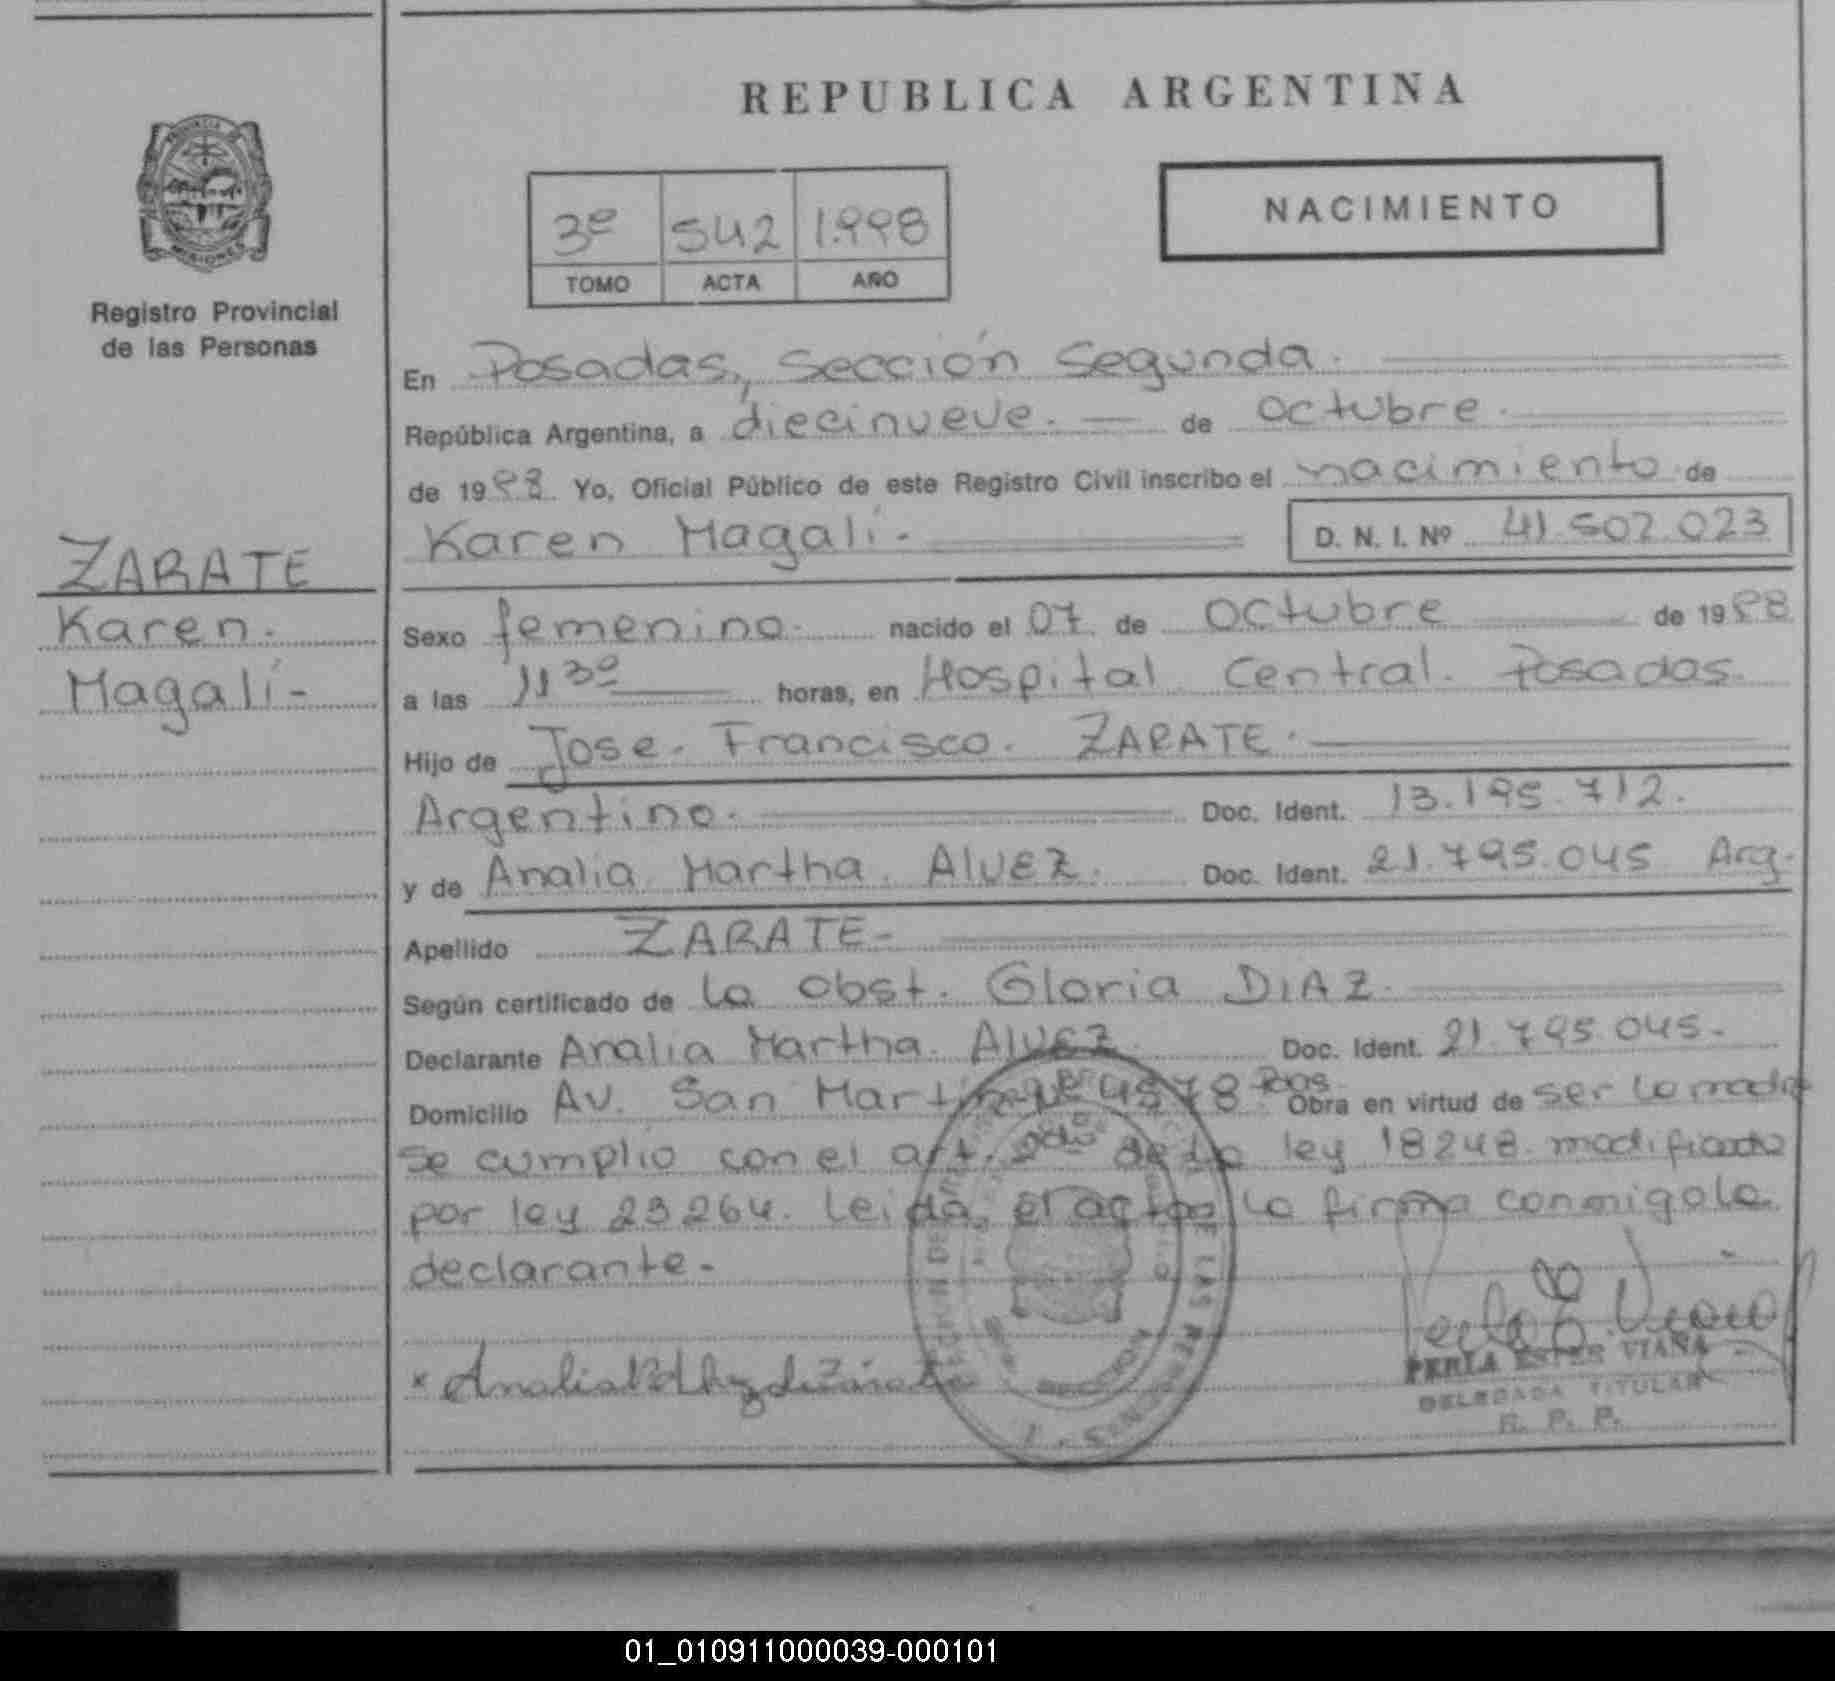 REPUBLICA ARGENTINA
PROVINCIA DE
MISIONES
Registro Provincial
de las Personas
3º 542 1.998
TOMO ACTA AÑO
NACIMIENTO
En Posadas, Sección Segunda.
República Argentina, a diecinueve. — de octubre.
de 1998. Yo, Oficial Público de este Registro Civil inscribo el nacimiento de
Karen Magalí.
D. N. I. Nº 41.502.023
ZARATE
Karen.
Magalí-
Sexo femenino. nacido el 07 de octubre de 1998
a las 11 30 horas, en Hospital Central. Posadas.
Hijo de Jose. Francisco. ZARATE.
Argentino. Doc. Ident. 13.195.712.
y de Analia Martha. AlvEZ. Doc. Ident. 21.795.045 Arg.
Apellido ZARATE-
Según certificado de la obst. Gloria DIAZ.
Declarante Analia Martha. AlvEZ. Doc. Ident. 21.795.045.
Domicilio Av. San Martin Nº 4578 Pdas. Obra en virtud de ser la madre
se cumplió con el art. 2do de la ley 18248. modificado
por ley 23264. Leida, el acta la firma conmigo la
declarante.
PERLA ESTER VIAÑA
DELEGADA TITULAR
R. P. P.
01_010911000039-000101